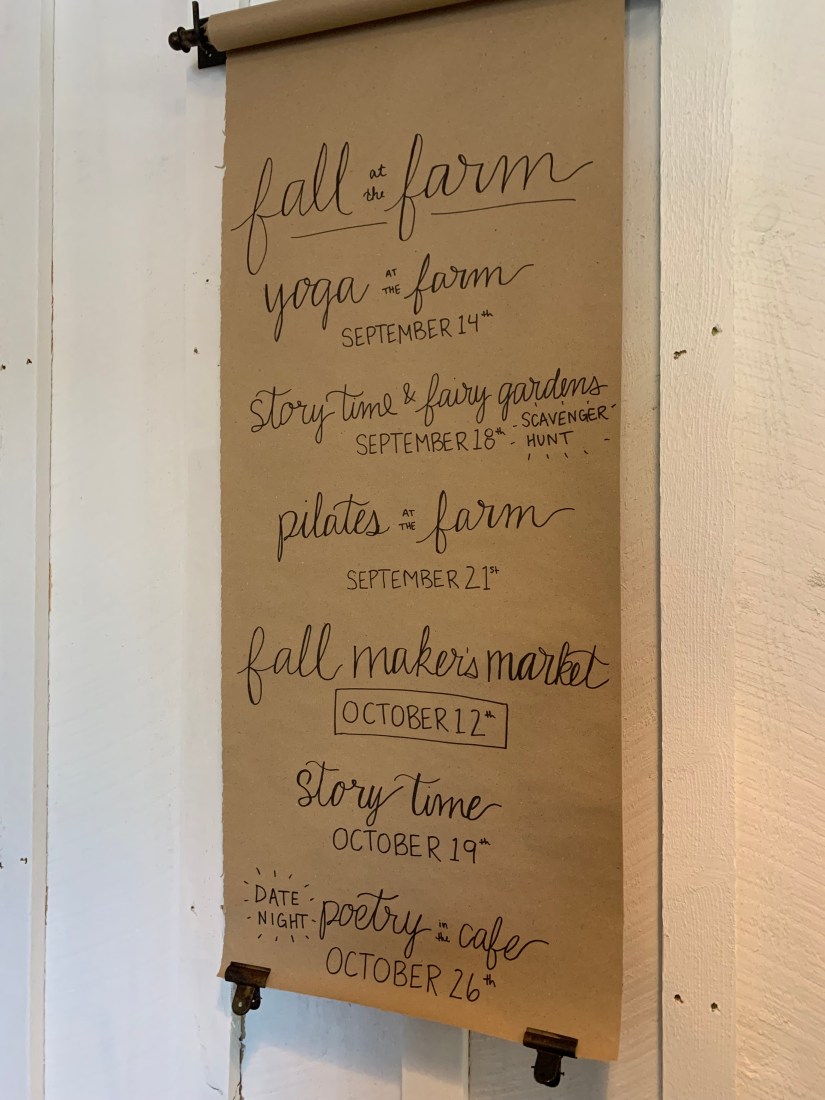 fall at the farm
yoga AT THE farm
SEPTEMBER 14th
story time & fairy gardens
SEPTEMBER 18th SCAVENGER
HUNT
pilates AT THE farm
SEPTEMBER 21st
fall maker's market
OCTOBER 12th
story time
OCTOBER 19th
DATE
NIGHT poetry in the cafe
OCTOBER 26th